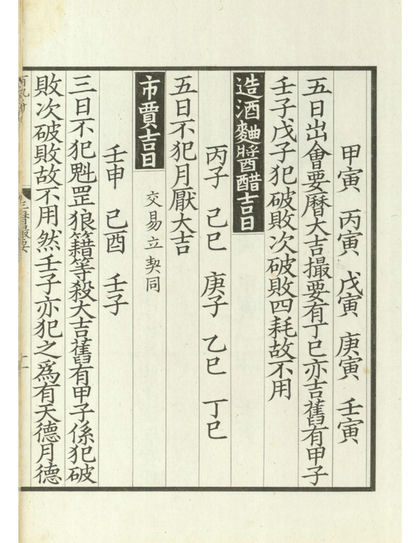 甲寅 丙寅 戊寅 庚寅 壬寅
五日出會要曆大吉撮要有丁巳亦吉舊有甲子
壬子戊子犯破敗次破敗四耗故不用
造酒麯醬醋吉日
丙子 己巳 庚子 乙巳 丁巳
五日不犯月厭大吉
市賈吉日 交易立契同
壬申 己酉 壬子
三日不犯魁罡狼籍等殺大吉舊有甲子係犯破
敗次破敗故不用然壬子亦犯之爲有天德月德